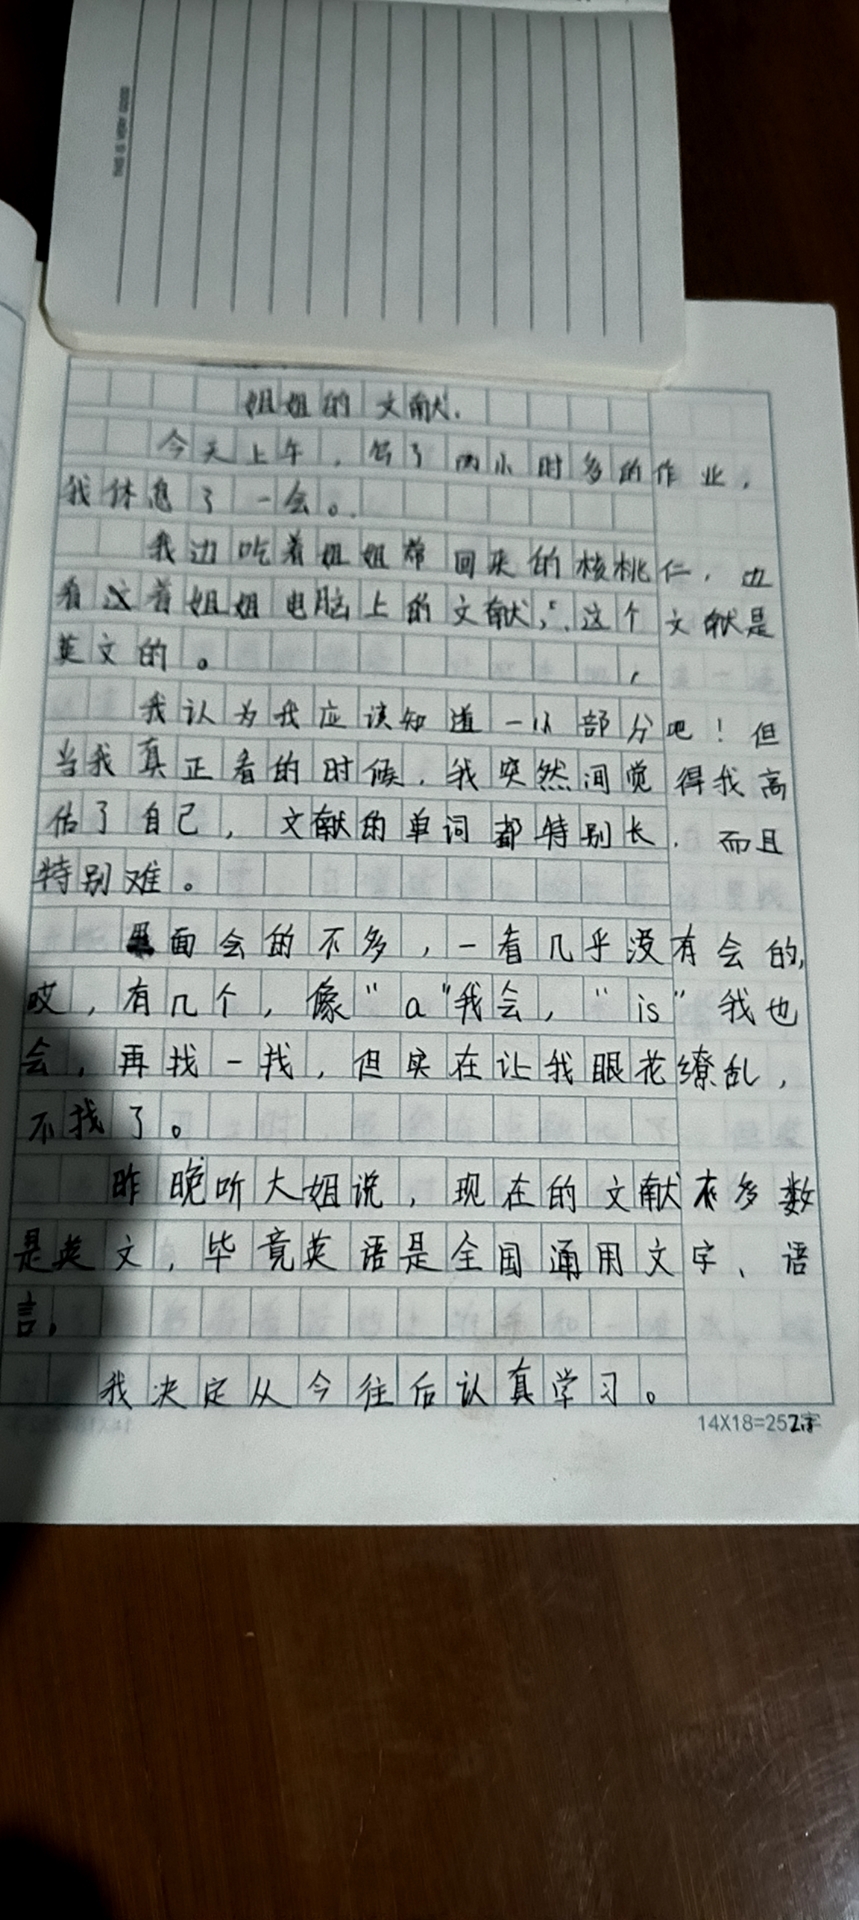 姐姐的文献.
今天上午，写了两小时多的作业，
我休息了一会。
我边吃着姐姐带回来的核桃仁，边
看这着姐姐电脑上的文献，这个文献是
英文的。
我认为我应该知道一小部分吧！但
当我真正看的时候，我突然间觉得我高
估了自己，文献的单词都特别长，而且
特别难。
里面会的不多，一看几乎没有会的，
哎，有几个，像“a”我会，“is”我也
会，再找一找，但实在让我眼花缭乱，
不找了。
昨晚听大姐说，现在的文献在多数
是英文，毕竟英语是全国通用文字、语
言。
我决定从今往后认真学习。
14X18=252字